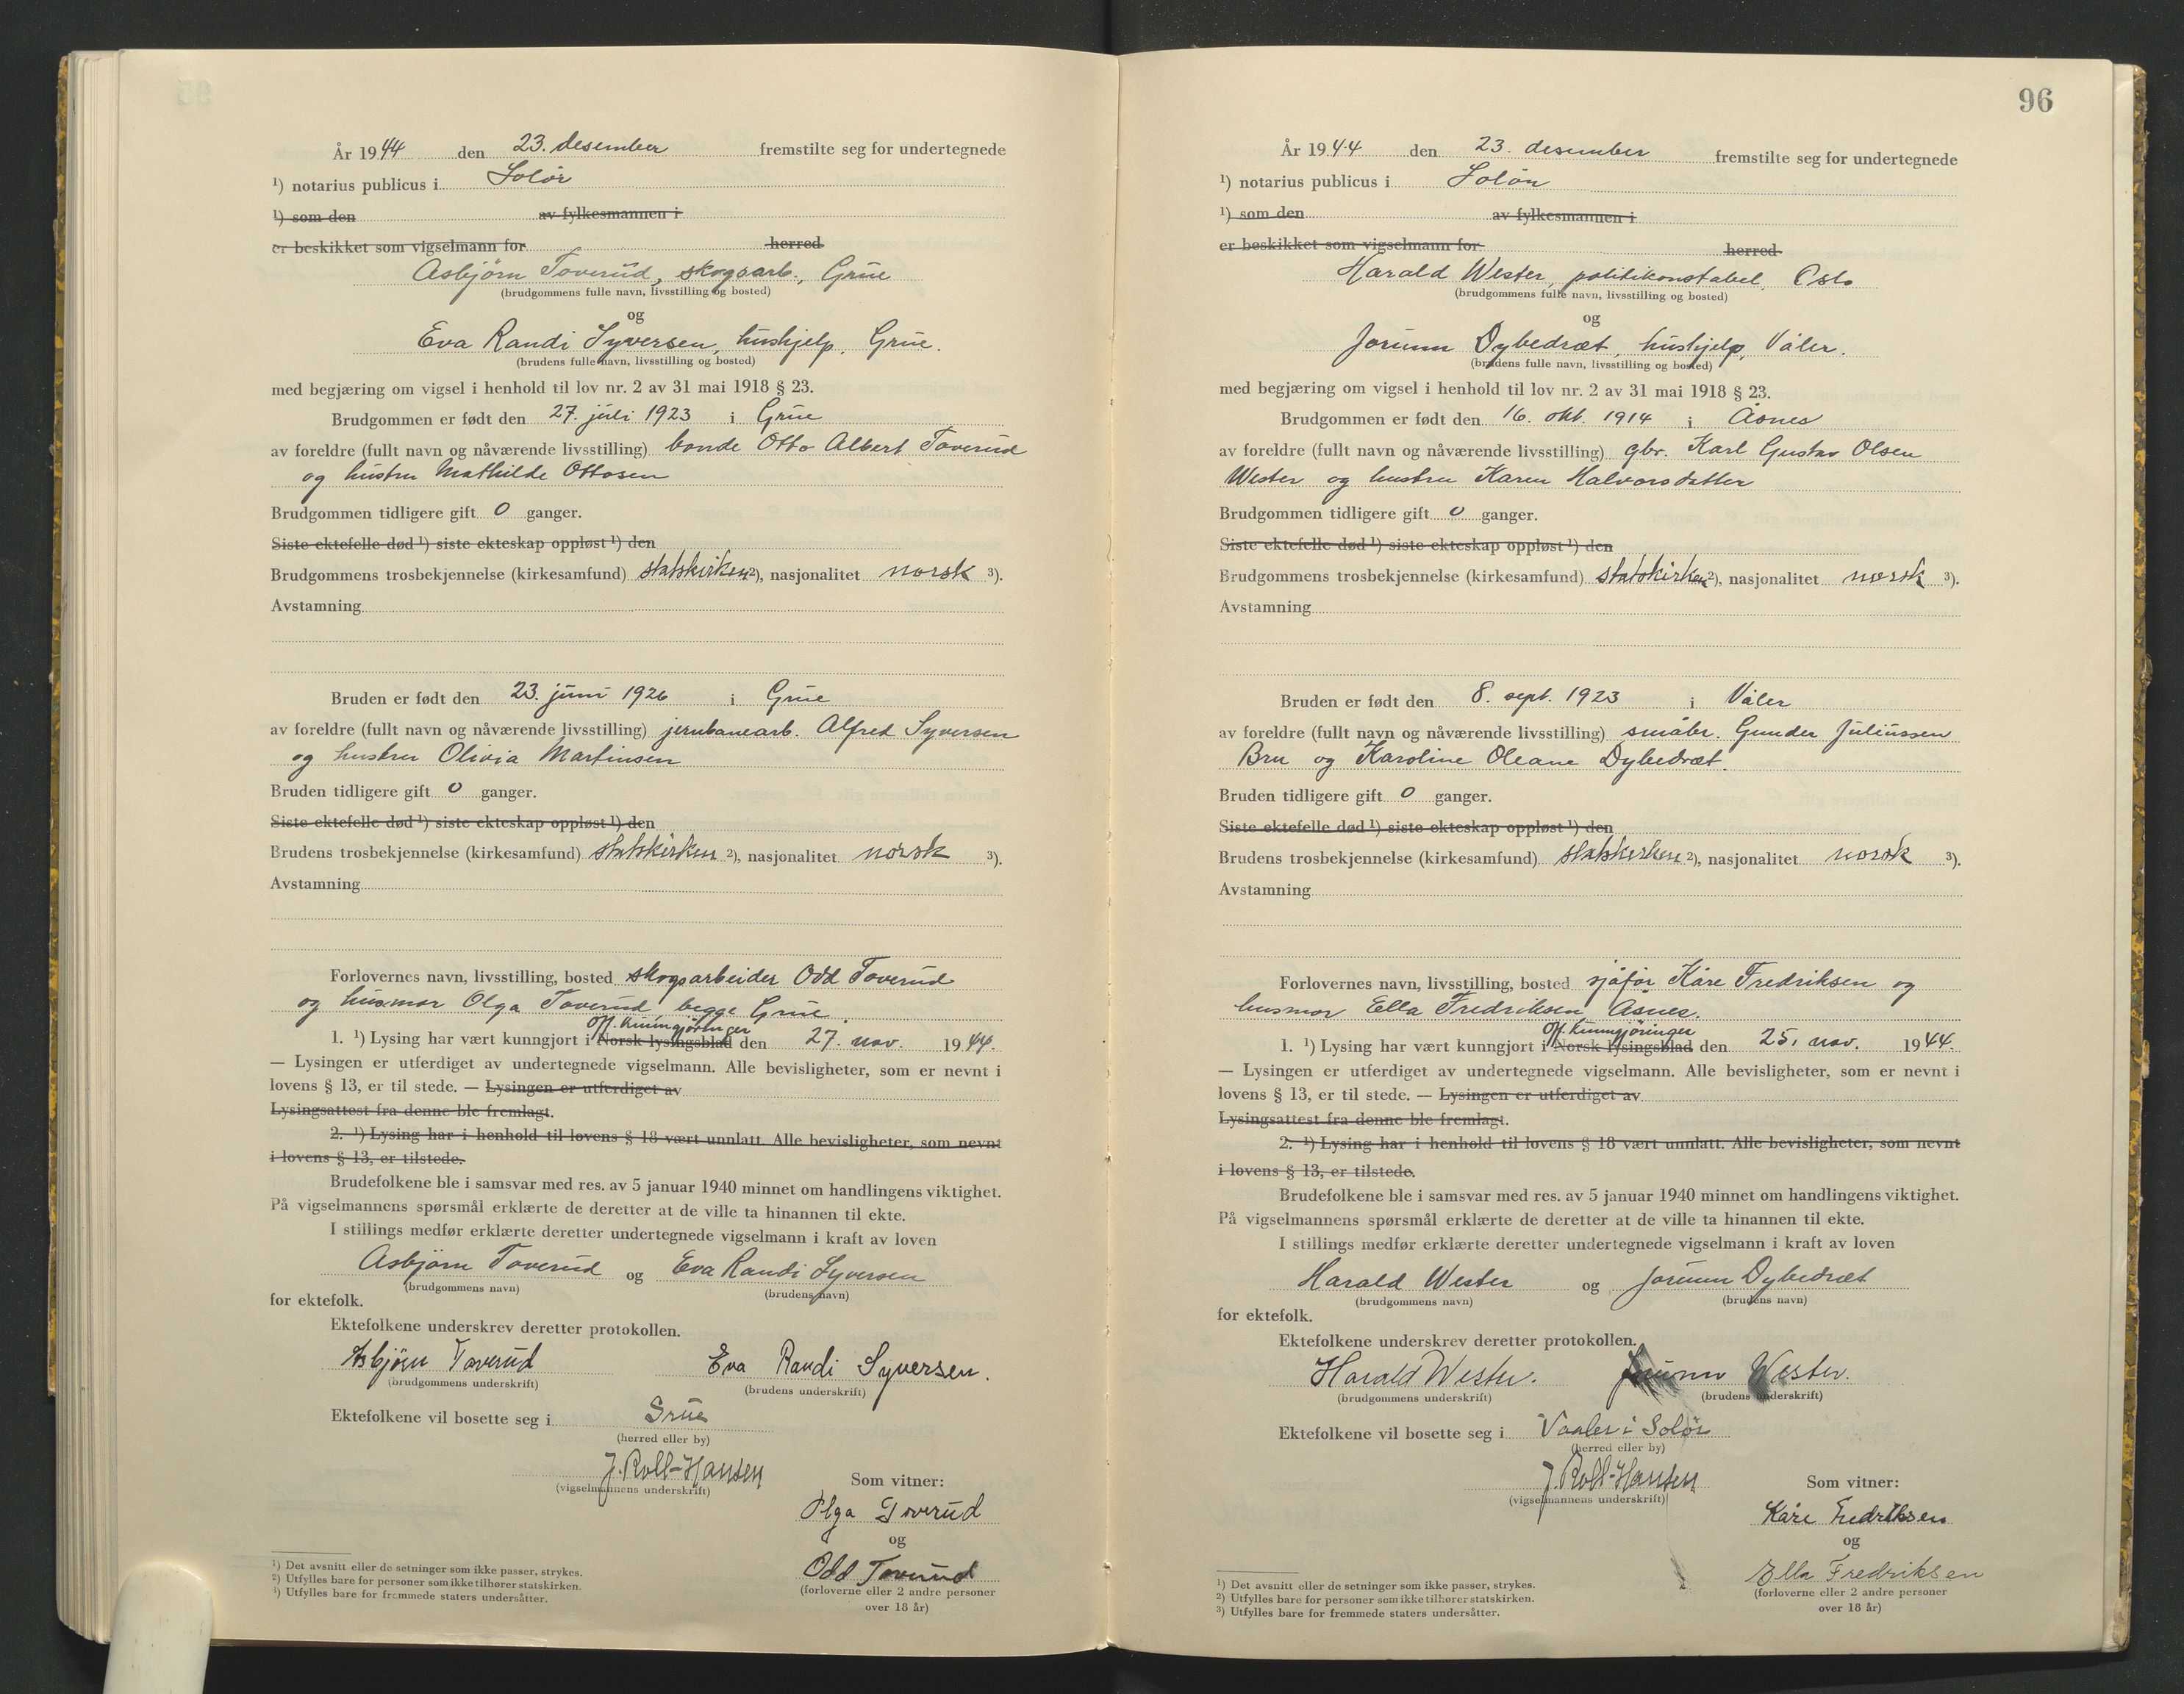 År 1944 den 23. desember fremstilte seg for undertegnede
¹) notarius publicus i Solör
¹) som den av fylkesmannen i
er beskikket som vigselmann for herred
Asbjörn Toverud, skogsarb., Grue
(brudgommens fulle navn, livsstilling og bosted)
og
Eva Randi Syversen, hushjelp, Grue.
(brudens fulle navn, livsstilling og bosted)
med begjæring om vigsel i henhold til lov nr. 2 av 31 mai 1918 § 23.
Brudgommen er født den 27. juli 1923 i Grue
av foreldre (fullt navn og nåværende livsstilling) bonde Otto Albert Toverud
og hustru Mathilde Ottosen
Brudgommen tidligere gift 0 ganger.
Siste ektefelle død ¹) siste ekteskap oppløst ¹) den
Brudgommens trosbekjennelse (kirkesamfund) statskirken ²), nasjonalitet norsk ³).
Avstamning
Bruden er født den 23. juni 1926 i Grue
av foreldre (fullt navn og nåværende livsstilling) jernbanearb. Alfred Syversen
og hustru Olivia Martinsen
Bruden tidligere gift 0 ganger.
Siste ektefelle død ¹) siste ekteskap oppløst ¹) den
Brudens trosbekjennelse (kirkesamfund) statskirken ²), nasjonalitet norsk ³).
Avstamning
Forlovernes navn, livsstilling, bosted skogsarbeider Odd Toverud
og husmor Olga Toverud, begge Grue.
off. kunngjöringer
1. ¹) Lysing har vært kunngjort i Norsk lysingsblad den 27. nov. 1944.
— Lysingen er utferdiget av undertegnede vigselmann. Alle bevisligheter, som er nevnt i
lovens § 13, er til stede. — Lysingen er utferdiget av
Lysingsattest fra denne ble fremlagt.
2. ¹) Lysing har i henhold til lovens § 18 vært unnlatt. Alle bevisligheter, som nevnt
i lovens § 13, er tilstede.
Brudefolkene ble i samsvar med res. av 5 januar 1940 minnet om handlingens viktighet.
På vigselmannens spørsmål erklærte de deretter at de ville ta hinannen til ekte.
I stillings medfør erklærte deretter undertegnede vigselmann i kraft av loven
Asbjörn Toverud og Eva Randi Syversen
(brudgommens navn) (brudens navn)
for ektefolk.
Ektefolkene underskrev deretter protokollen.
Asbjörn Toverud Eva Randi Syversen.
(brudgommens underskrift) (brudens underskrift)
Ektefolkene vil bosette seg i Grue
(herred eller by)
J. Roll-Hansen
(vigselmannens underskrift)
Som vitner:
Olga Toverud
og
Odd Toverud
(forloverne eller 2 andre personer
over 18 år)
¹) Det avsnitt eller de setninger som ikke passer, strykes.
²) Utfylles bare for personer som ikke tilhører statskirken.
³) Utfylles bare for fremmede staters undersåtter.
96
År 1944 den 23. desember fremstilte seg for undertegnede
¹) notarius publicus i Solör
¹) som den av fylkesmannen i
er beskikket som vigselmann for herred
Harald Wester, politikonstabel, Oslo
(brudgommens fulle navn, livsstilling og bosted)
og
Jorunn Dybedræt, hushjelp, Våler.
(brudens fulle navn, livsstilling og bosted)
med begjæring om vigsel i henhold til lov nr. 2 av 31 mai 1918 § 23.
Brudgommen er født den 16. okt. 1914 i Åsnes
av foreldre (fullt navn og nåværende livsstilling) gbr. Karl Gustav Olsen
Wester og hustru Karen Halvorsdatter
Brudgommen tidligere gift 0 ganger.
Siste ektefelle død ¹) siste ekteskap oppløst ¹) den
Brudgommens trosbekjennelse (kirkesamfund) statskirken ²), nasjonalitet norsk ³).
Avstamning
Bruden er født den 8. sept. 1923 i Våler
av foreldre (fullt navn og nåværende livsstilling) småbr. Gunder Juliussen
Bru og Karoline Oleane Dybedræt.
Bruden tidligere gift 0 ganger.
Siste ektefelle død ¹) siste ekteskap oppløst ¹) den
Brudens trosbekjennelse (kirkesamfund) statskirken ²), nasjonalitet norsk ³).
Avstamning
Forlovernes navn, livsstilling, bosted sjåför Kåre Fredriksen og
husmor Ella Fredriksen, Åsnes.
off. kunngjöringer
1. ¹) Lysing har vært kunngjort i Norsk lysingsblad den 25. nov. 1944.
— Lysingen er utferdiget av undertegnede vigselmann. Alle bevisligheter, som er nevnt i
lovens § 13, er til stede. — Lysingen er utferdiget av
Lysingsattest fra denne ble fremlagt.
2. ¹) Lysing har i henhold til lovens § 18 vært unnlatt. Alle bevisligheter, som nevnt
i lovens § 13, er tilstede.
Brudefolkene ble i samsvar med res. av 5 januar 1940 minnet om handlingens viktighet.
På vigselmannens spørsmål erklærte de deretter at de ville ta hinannen til ekte.
I stillings medfør erklærte deretter undertegnede vigselmann i kraft av loven
Harald Wester og Jorunn Dybedræt
(brudgommens navn) (brudens navn)
for ektefolk.
Ektefolkene underskrev deretter protokollen.
Harald Wester. Jorunn Wester.
(brudgommens underskrift) (brudens underskrift)
Ektefolkene vil bosette seg i Vaaler i Solör
(herred eller by)
J. Roll-Hansen
(vigselmannens underskrift)
Som vitner:
Kåre Fredriksen
og
Ella Fredriksen
(forloverne eller 2 andre personer
over 18 år)
¹) Det avsnitt eller de setninger som ikke passer, strykes.
²) Utfylles bare for personer som ikke tilhører statskirken.
³) Utfylles bare for fremmede staters undersåtter.